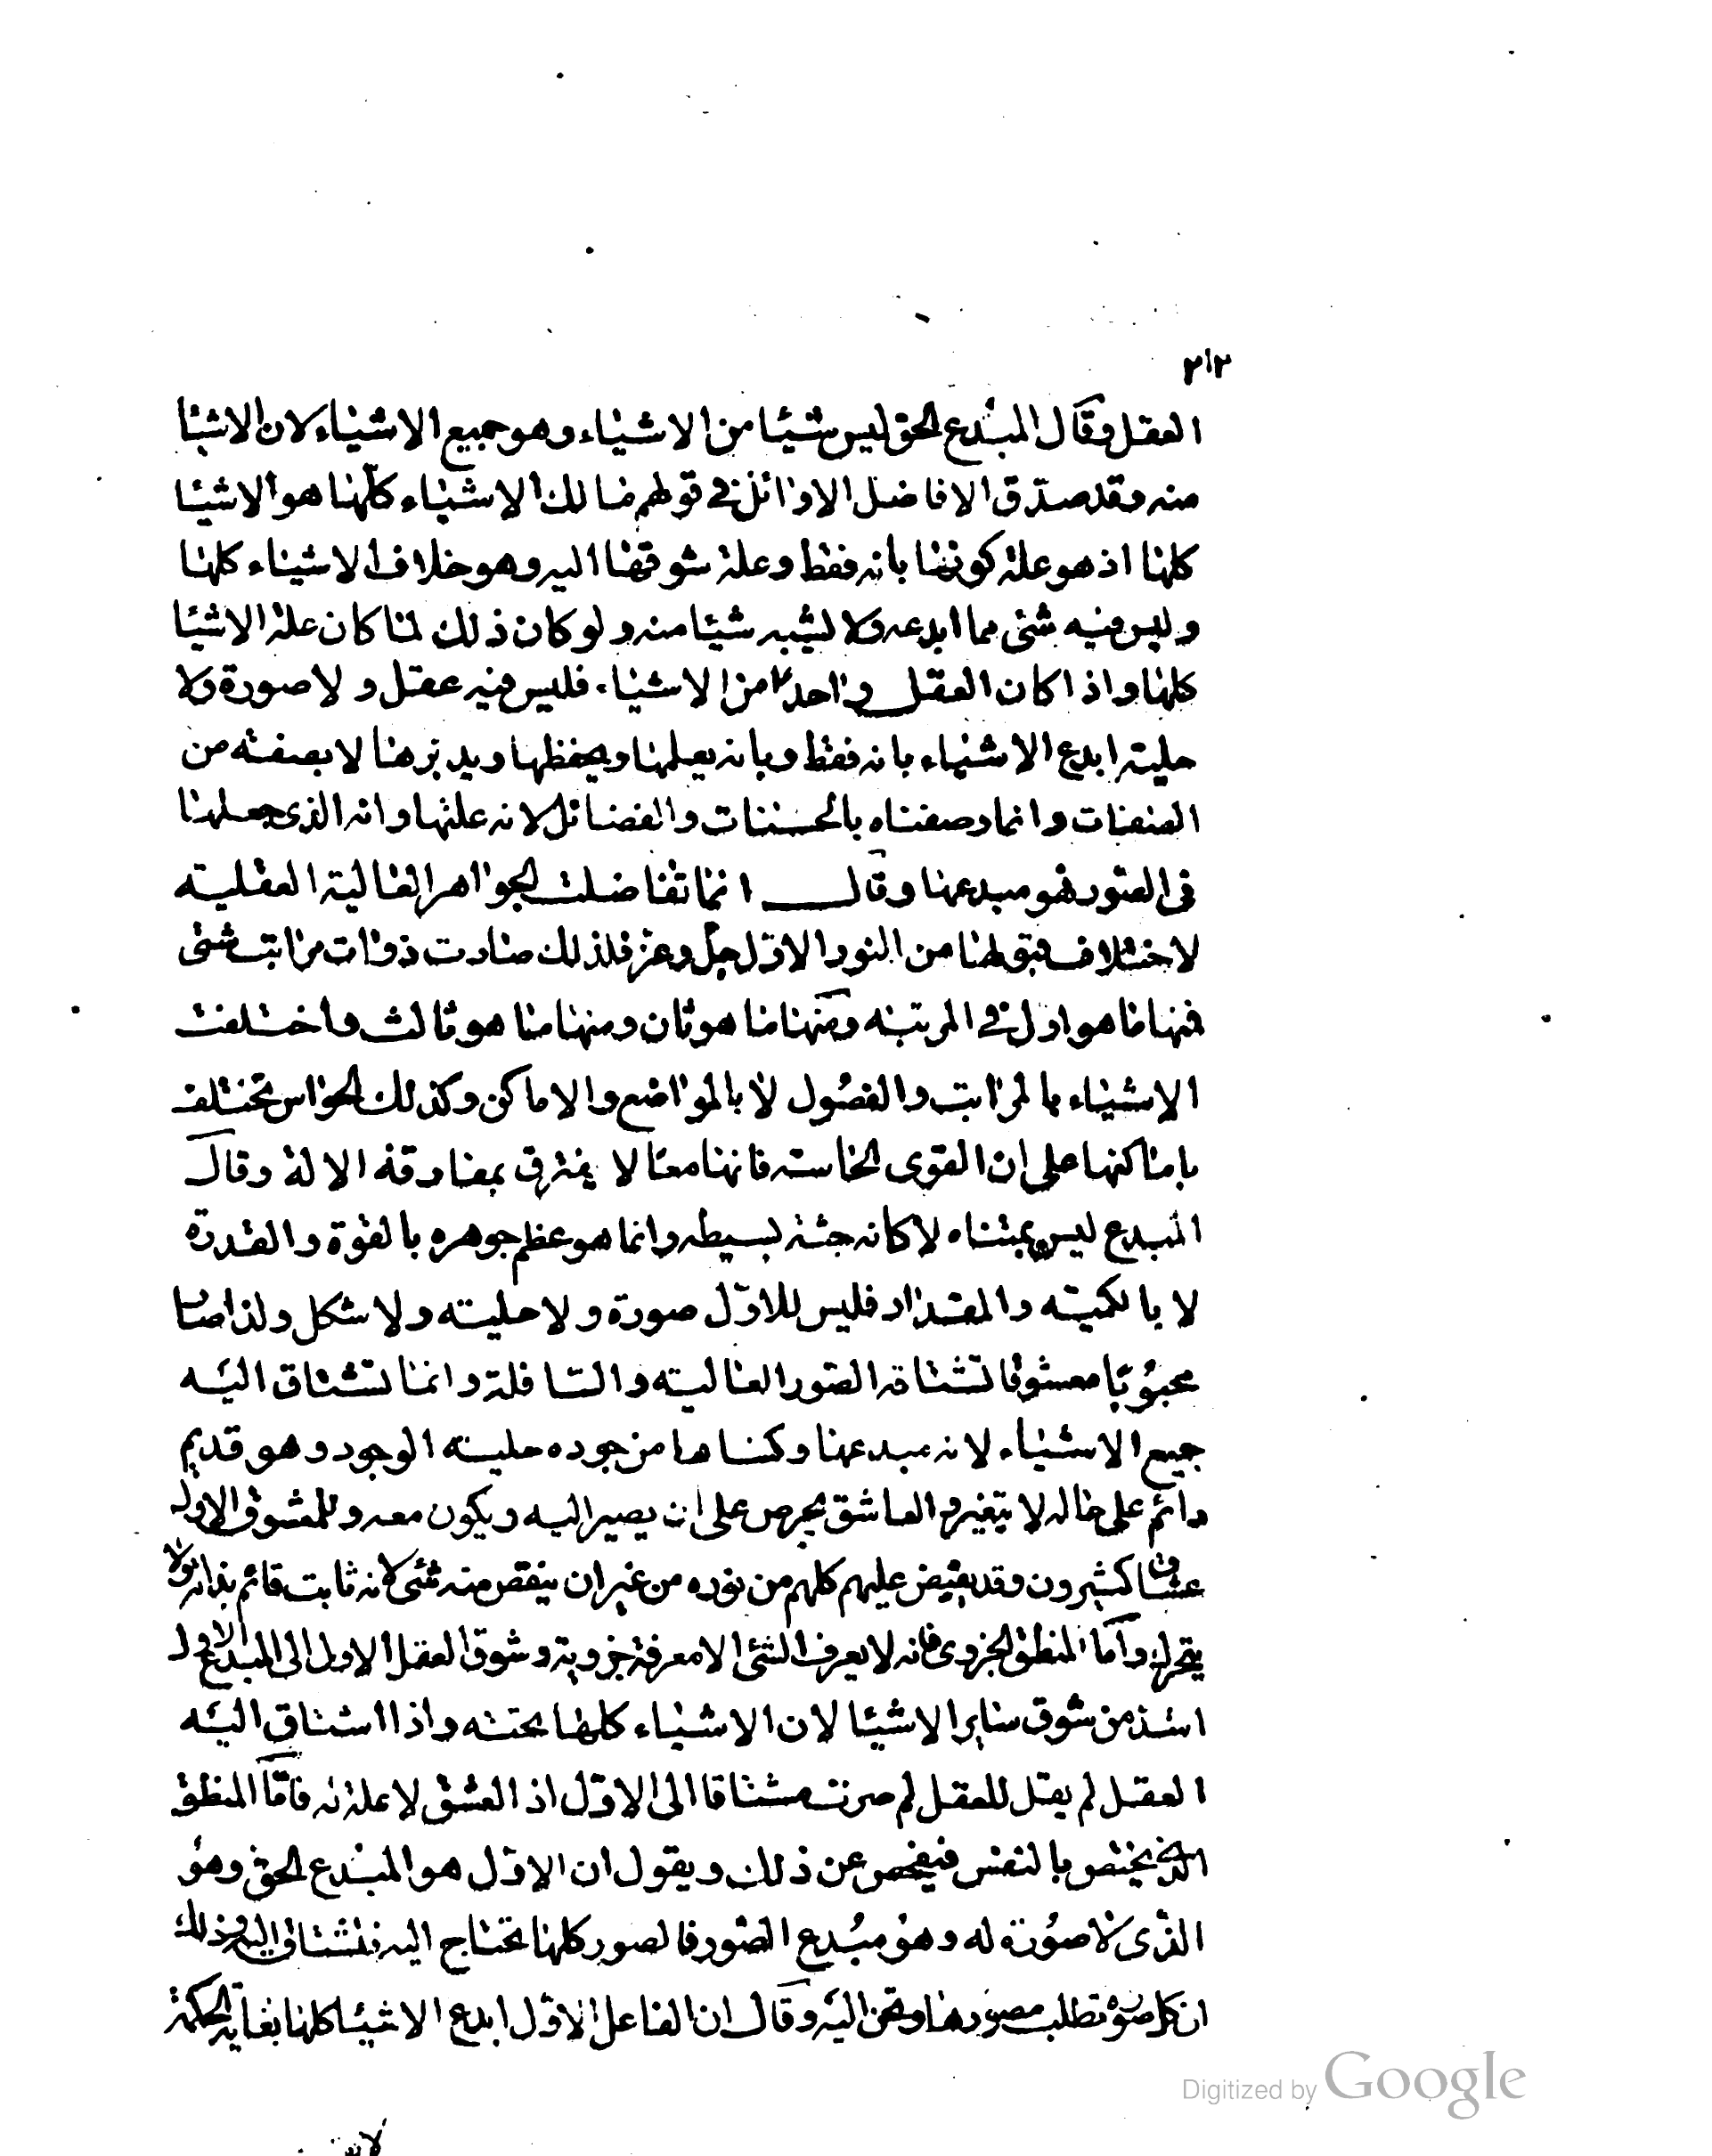 ٢١٢
العقل وقال المبدع الحق ليس شيئا من الاشياء وهو جميع الاشياء لان الاشيا
منه وقد صدق الافاضل الاوائل في قولهم مالك الاشياء كلها هو الاشيا
كلها اذ هو علة كونها بانه فقط وعلة شوقها اليه وهو خلاف الاشياء كلها
وليس فيه شئ مما ابدعه ولا يشبه شيئا منه ولو كان ذلك لما كان علة الاشيا
كلها واذا كان العقل واحدا من الاشياء فليس فيه عقل ولا صورة ولا
حلية ابدع الاشياء بانه فقط وبانه يعلمها ويحفظها ويدبرها لا بصفة من
الصفات وانما وصفناه بالحسنات والفضائل لانه علتها وانه الذى جعلها
فى الصور فهو مبدعها وقال انما تفاضلت الجواهر العالية العقلية
لاختلاف قبولها من النور الاول جل وعز فلذلك صارت ذوات مراتب شتى
فمنها ما هو اول في المرتبه ومنها ما هو ثان ومنها ما هو ثالث واختلفت
الاشياء بالمراتب والفصول لا بالمواضع والاماكن وكذلك الحواس تختلف
باماكنها على ان القوى الحاسة فانها معا لا يفترق بمفارقة الالة وقال
المبدع ليس بمتناه لا كانه جثة بسيطه وانما هو عظم جوهره بالقوة والقدرة
لا بالكمية والمقدار فليس للاول صورة ولا حلية ولا شكل ولذا صار
محبوبا معشوقا تشتاقه الصور العالية والسافلة وانما تشتاق اليه
جميع الاشياء لانه مبدعها وكساها من جوده حلية الوجود وهو قديم
دائم على حاله لا يتغير والعاشق يحرص على ان يصير اليه ويكون معه وللمعشوق الاول
عشاق كثيرون وقد يفيض عليهم كلهم من نوره من غير ان ينقص منه شئ لانه ثابت قائم بذاته لا
يتحرك واما المنطق الجزوى فانه لا يعرف الشئ الا معرفة جزوية وشوق العقل الاول الى المبدع الاول
اشد من شوق ساير الاشيا لان الاشياء كلها تحته واذا اشتاق اليه
العقل لم يقل للعقل لم صرت مشتاقا الى الاول اذ العشق لا علة له فاما المنطق
الذى يختص بالنفس فيفحص عن ذلك ويقول ان الاول هو المبدع الحق وهو
الذى لا صورة له وهو مبدع الصور فالصور كلها تحتاج اليه فتشتاق اليه وذلك
ان كل صورة تطلب مصورها وتحن اليه وقال ان الفاعل الاول ابدع الاشيا كلها بغاية الحكمة
Digitized by Google